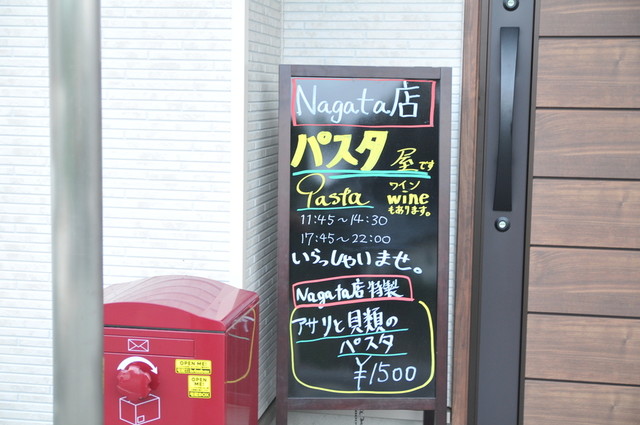 Nagata店
パスタ屋です
Pasta
ワイン
wine
もあります。
11:45~14:30
17:45~22:00
いらっしゃいませ。
Nagata店特製
アサリと貝類の
パスタ
¥1500
OPEN ME!
OPEN
ME!